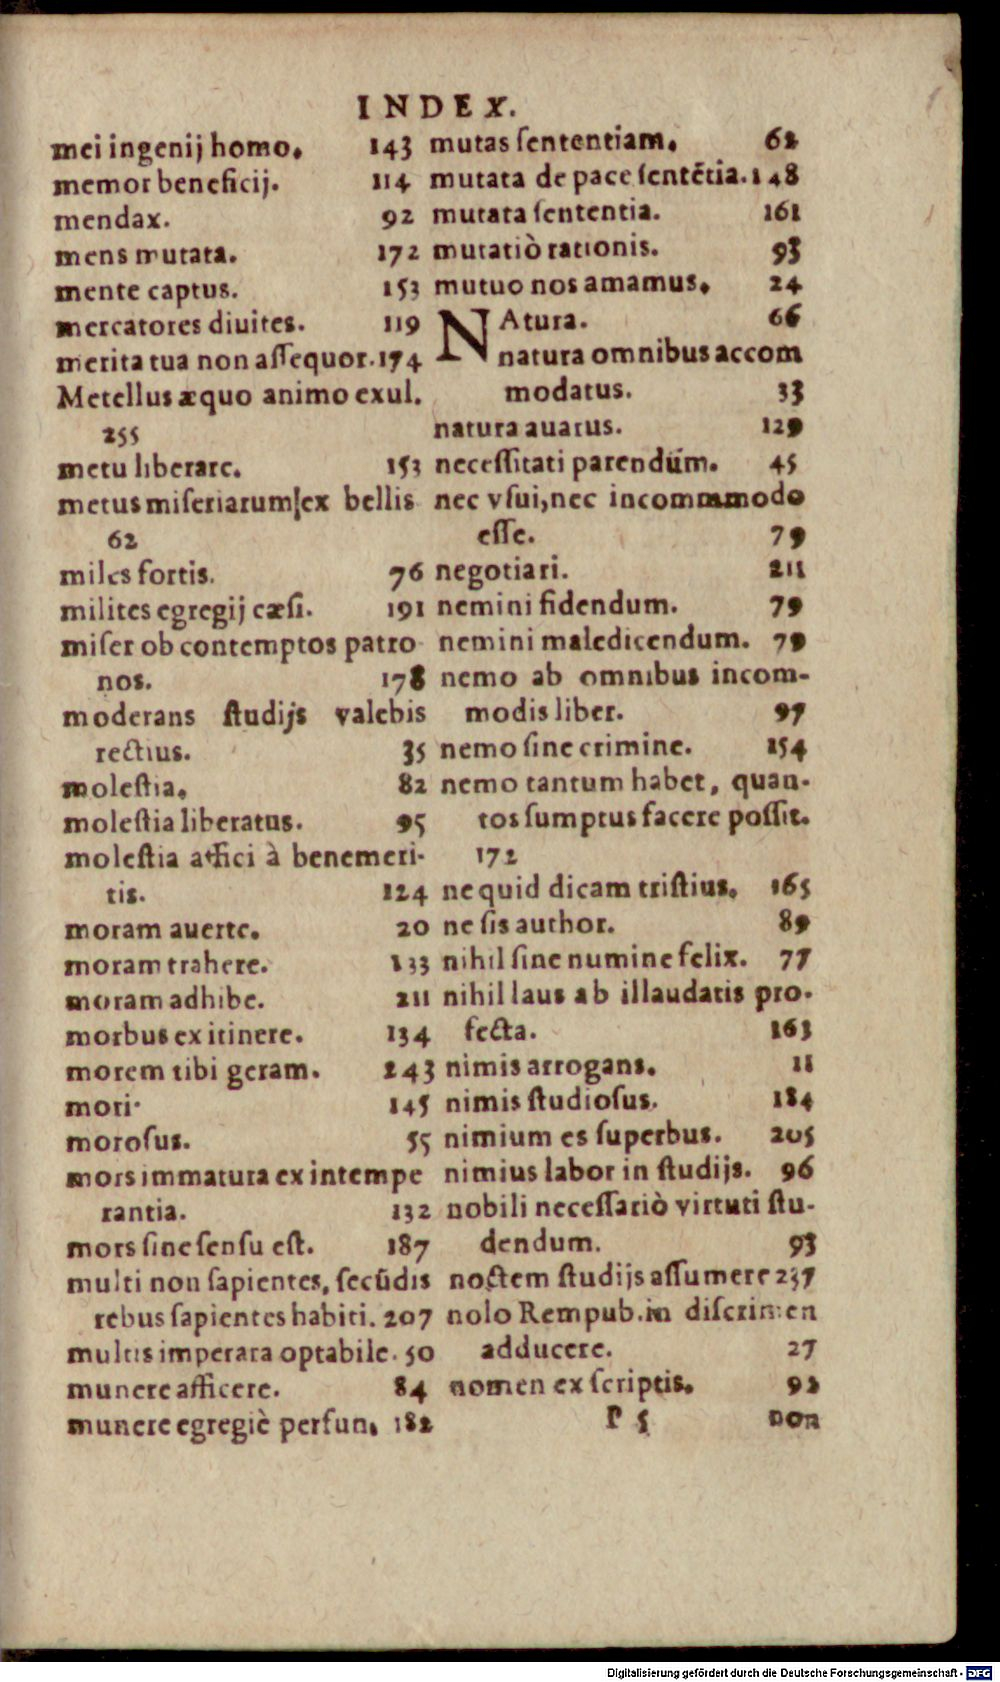 INDEX.
mei ingenij homo. 143
memor beneficij. 114
mendax. 92
mens mutata. 172
mente captus. 153
mercatores diuites. 119
merita tua non aſſequor. 174
Metellus æquo animo exul.
255
metu liberare. 153
metus miſeriarum ex bellis
62
miles fortis. 76
milites egregij cæſi. 191
miſer ob contemptos patro
nos. 178
moderans ſtudijs valebis
rectius. 35
moleſtia. 82
moleſtia liberatus. 95
moleſtia affici à benemeri-
tis. 124
moram auerte. 20
moram trahere. 133
moram adhibe. 211
morbus ex itinere. 134
morem tibi geram. 243
mori. 145
moroſus. 55
mors immatura ex intempe
rantia. 132
mors ſine ſenſu eſt. 187
multi non ſapientes, ſecũdis
rebus ſapientes habiti. 207
multis imperara optabile. 50
munere afficere. 84
munere egregiè perfun. 182
mutas ſententiam. 62
mutata de pace ſentẽtia. 148
mutata ſententia. 161
mutatiò rationis. 93
mutuo nos amamus. 24
NAtura. 66
natura omnibus accom
modatus. 33
natura auarus. 129
neceſſitati parendũm. 45
nec vſui, nec incommmodo
eſſe. 79
negotiari. 211
nemini fidendum. 79
nemini maledicendum. 79
nemo ab omnibus incom-
modis liber. 97
nemo ſine crimine. 154
nemo tantum habet, quan-
tos ſumptus facere poſſit.
172
ne quid dicam triſtius. 165
ne ſis author. 89
nihil ſine numine felix. 77
nihil laus ab illaudatis pro-
fecta. 163
nimis arrogans. 11
nimis ſtudioſus. 184
nimium es ſuperbus. 205
nimius labor in ſtudijs. 96
nobili neceſſariò virtuti ſtu-
dendum. 93
noctem ſtudijs aſſumere 237
nolo Rempub. in diſcrimen
adducere. 27
nomen ex ſcriptis. 92
P 5 non
Digitalisierung gefördert durch die Deutsche Forschungsgemeinschaft - DFG